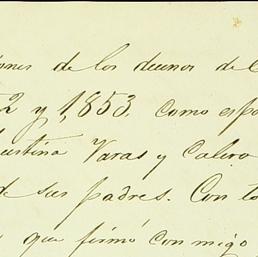 iones de los duenos de C
2 y 1,853. como espo
ustina Varas y Calero
de sus padres. Con to
que firmó con migo